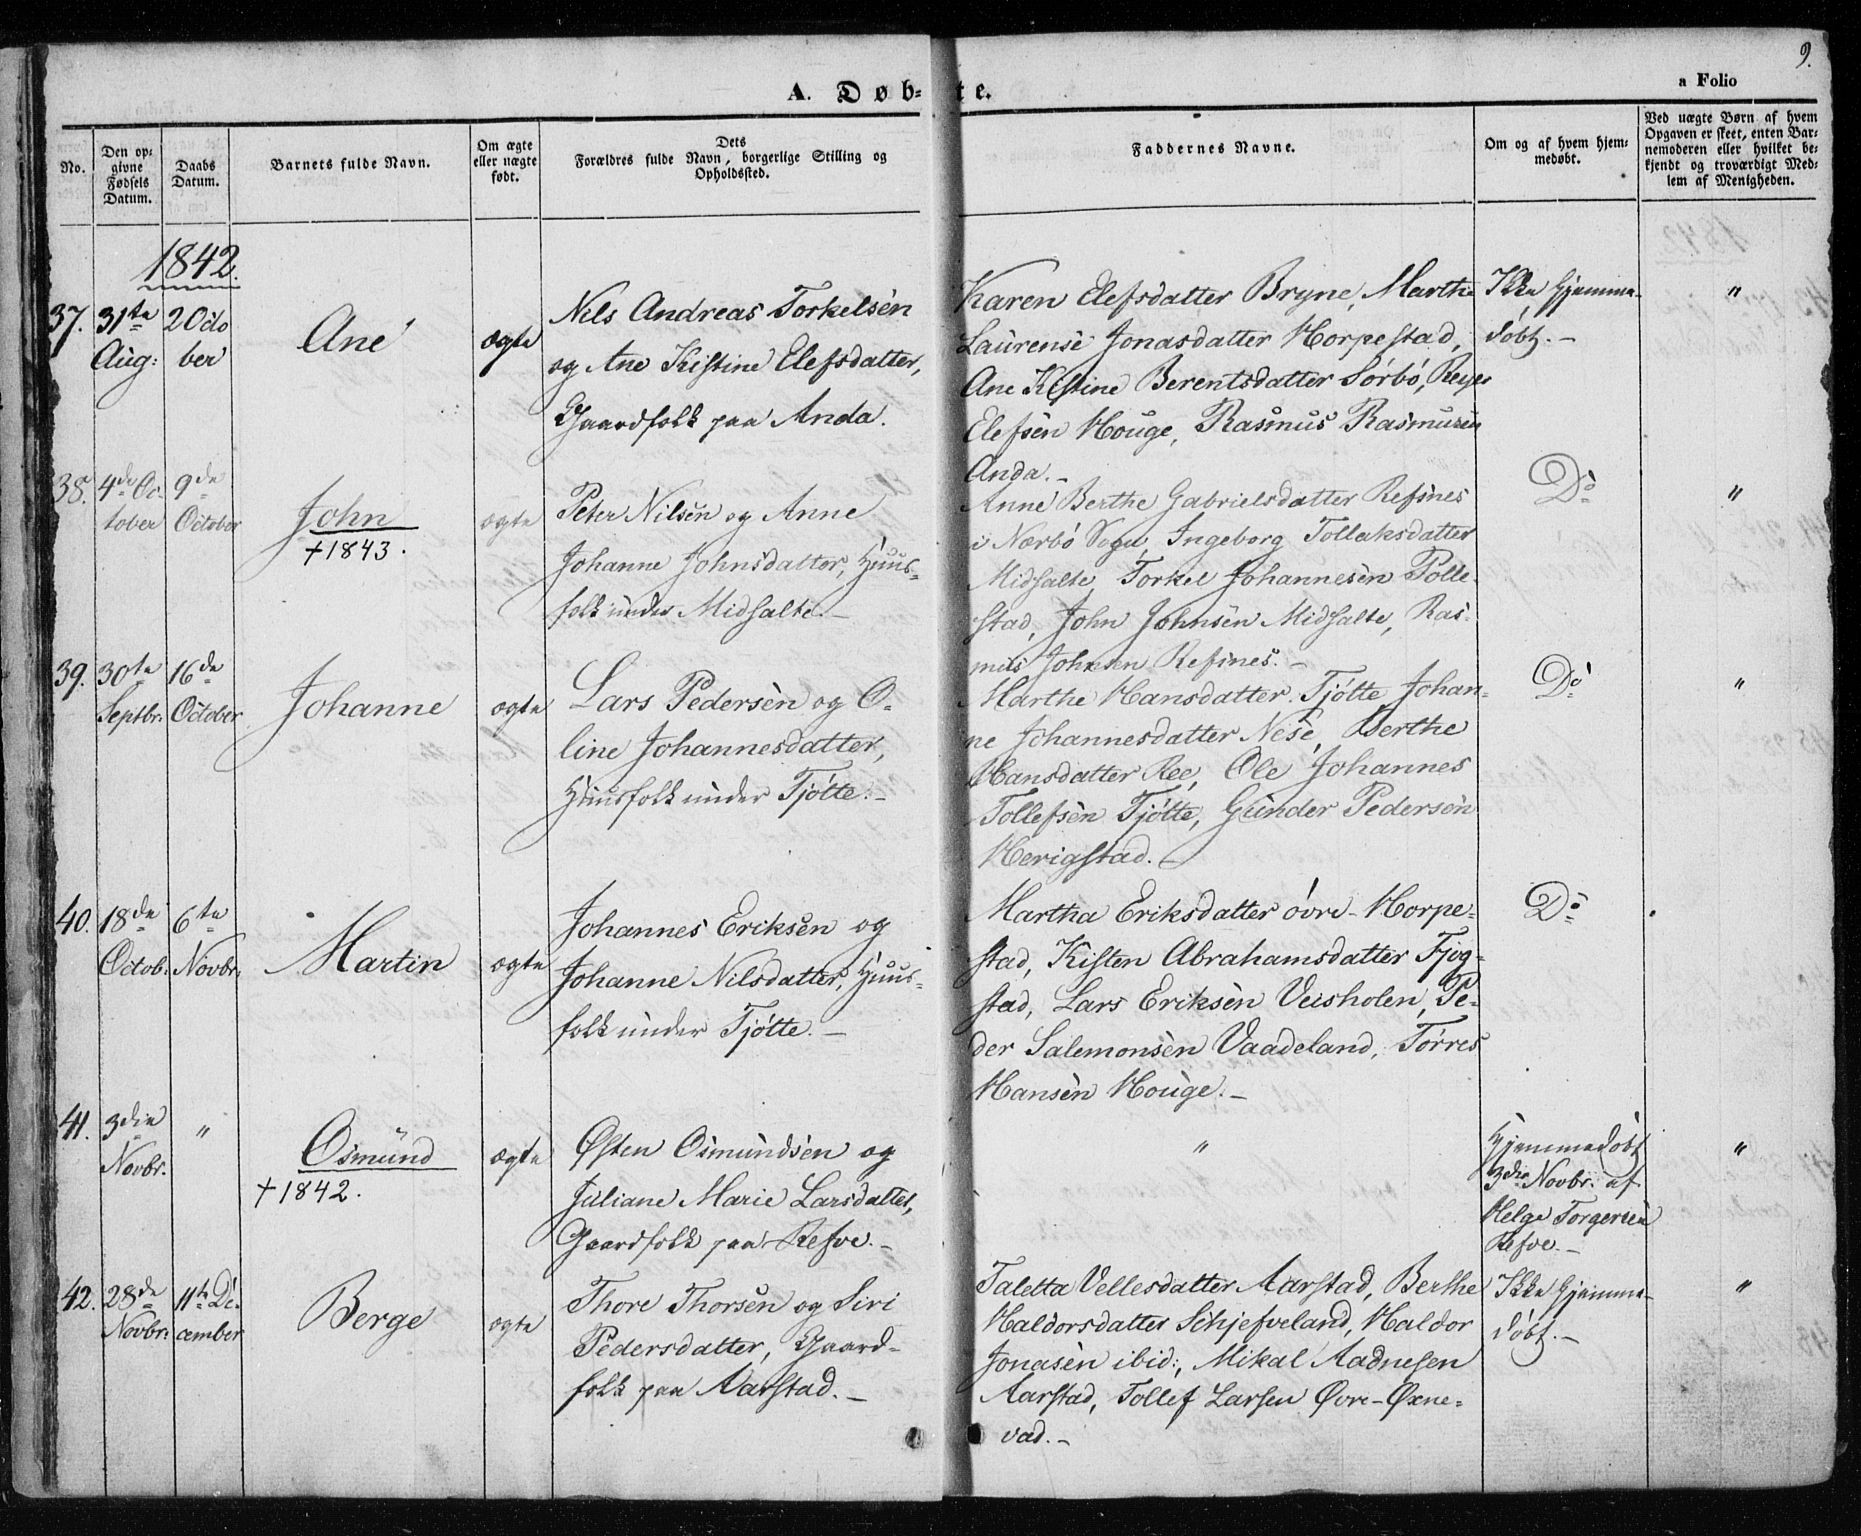 9.
A. Døbte.
a Folio
No.
Den opgivne Fødsels Datum.
Daabs Datum.
Barnets fulde Navn.
Om ægte eller uægte født.
Dets Forældres fulde Navn, borgerlige Stilling og Opholdssted.
Faddernes Navne.
Om og af hvem hjemmedøbt.
Ved uægte Børn af hvem Opgaven er skeet, enten Barnemoderen eller hvilket bekjendt og troværdigt Medlem af Menigheden.
1842.
37.
31te
Aug:
2 Octo
ber
Ane
ægte
Nils Andreas Torkelsen
og Ane Kistine Elefsdatter,
Gaardfolk paa Anda.
Karen Elefsdatter Bryne, Marthe
Laurense Jonasdatter Horpestad,
Ane Kistine Berentsdatter Sørbø, Reyer
Elefsen Houge, Rasmus Rasmusen
Anda.-
Ikke hjemme-
døbt.-
"
38.
4de Oc-
tober
9de
October
John
+1843.
ægte
Peter Nilsen og Anne
Johanne Johnsdatter, Huus-
folk under Midsalte.-
Anne Berthe Gabrielsdatter Refsnes
i Nærbø Sogn, Ingeborg Tollaksdatter
Midsalte, Torkel Johannesen Polle-
stad, John Johnsen Midsalte, Ras-
mus Johnsen Refsnes.-
Do
"
39.
30te
Septbr:
16de
October
Johanne
ægte
Lars Pedersen og O-
line Johannesdatter,
Huusfolk under Tjøtte.-
Marthe Hansdatter Tjøtte, Johan-
ne Johannesdatter Nese, Berthe
Hansdatter Ree, Ole Johannes
Tollefsen Tjøtte, Gunder Pedersen
Herigstad.-
Do
"
40.
18de
Octob:
6te
Novbr:
Martin
ægte
Johannes Eriksen og
Johanne Nilsdatter, Huus-
folk under Tjøtte.-
Martha Eriksdatter øvre-Horpe-
stad, Kisten Abrahamsdatter Fjog-
stad, Lars Eriksen Veisholen, Pe-
der Salemonsen Vaadeland, Tørres
Hansen Houge.-
Do
41.
3die
Novbr.
"
Osmund
+1842.
ægte
Østen Osmundsen og
Juliane Marie Larsdatter,
Gaardfolk paa Refve.-
"
Hjemmedøbt
3die Novbr: af
Helge Torgersen
Refve.-
"
42.
28de
Novbr:
11te De-
cember
Berge
ægte
Thore Thorsen og Siri
Pedersdatter, Gaard-
folk paa Aarstad.-
Taletta Vellesdatter Aarstad, Berthe
Haldorsdatter Schjefveland, Haldor
Jonasen ibid:, Mikal Aadnesen
Aarstad, Tollef Larsen Øvre-Øxne-
vad.-
Ikke hjemme-
døbt.-
"